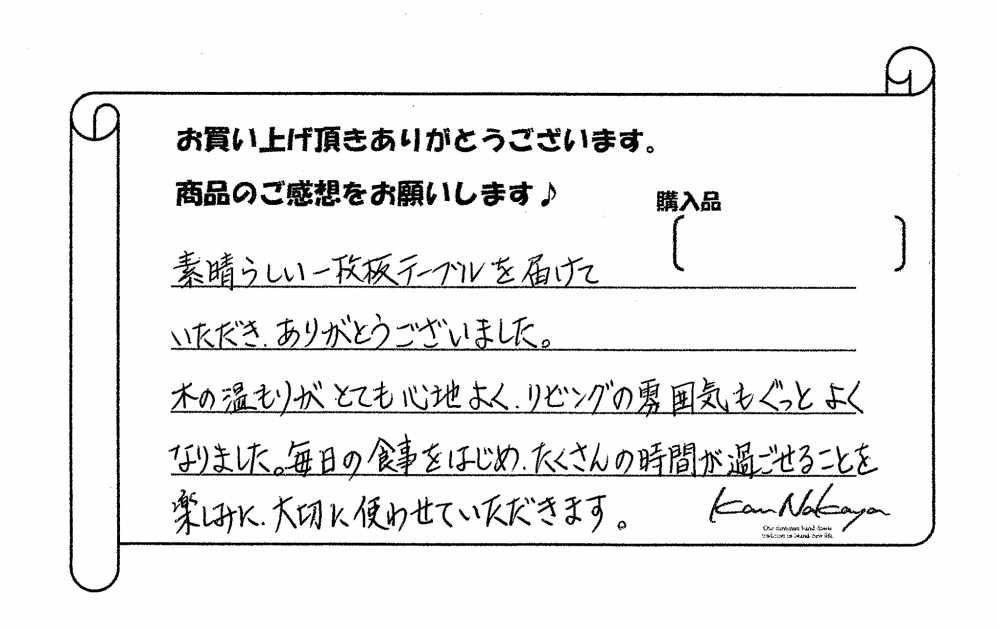 お買い上げ頂きありがとうございます。
商品のご感想をお願いします♪
購入品
素晴らしい一枚板テーブルを届けて
いただき、ありがとうございました。
木の温もりがとても心地よく、リビングの雰囲気もぐっとよく
なりました。毎日の食事をはじめ、たくさんの時間が過ごせることを
楽しみに、大切に使わせていただきます。
Kan Nakaya